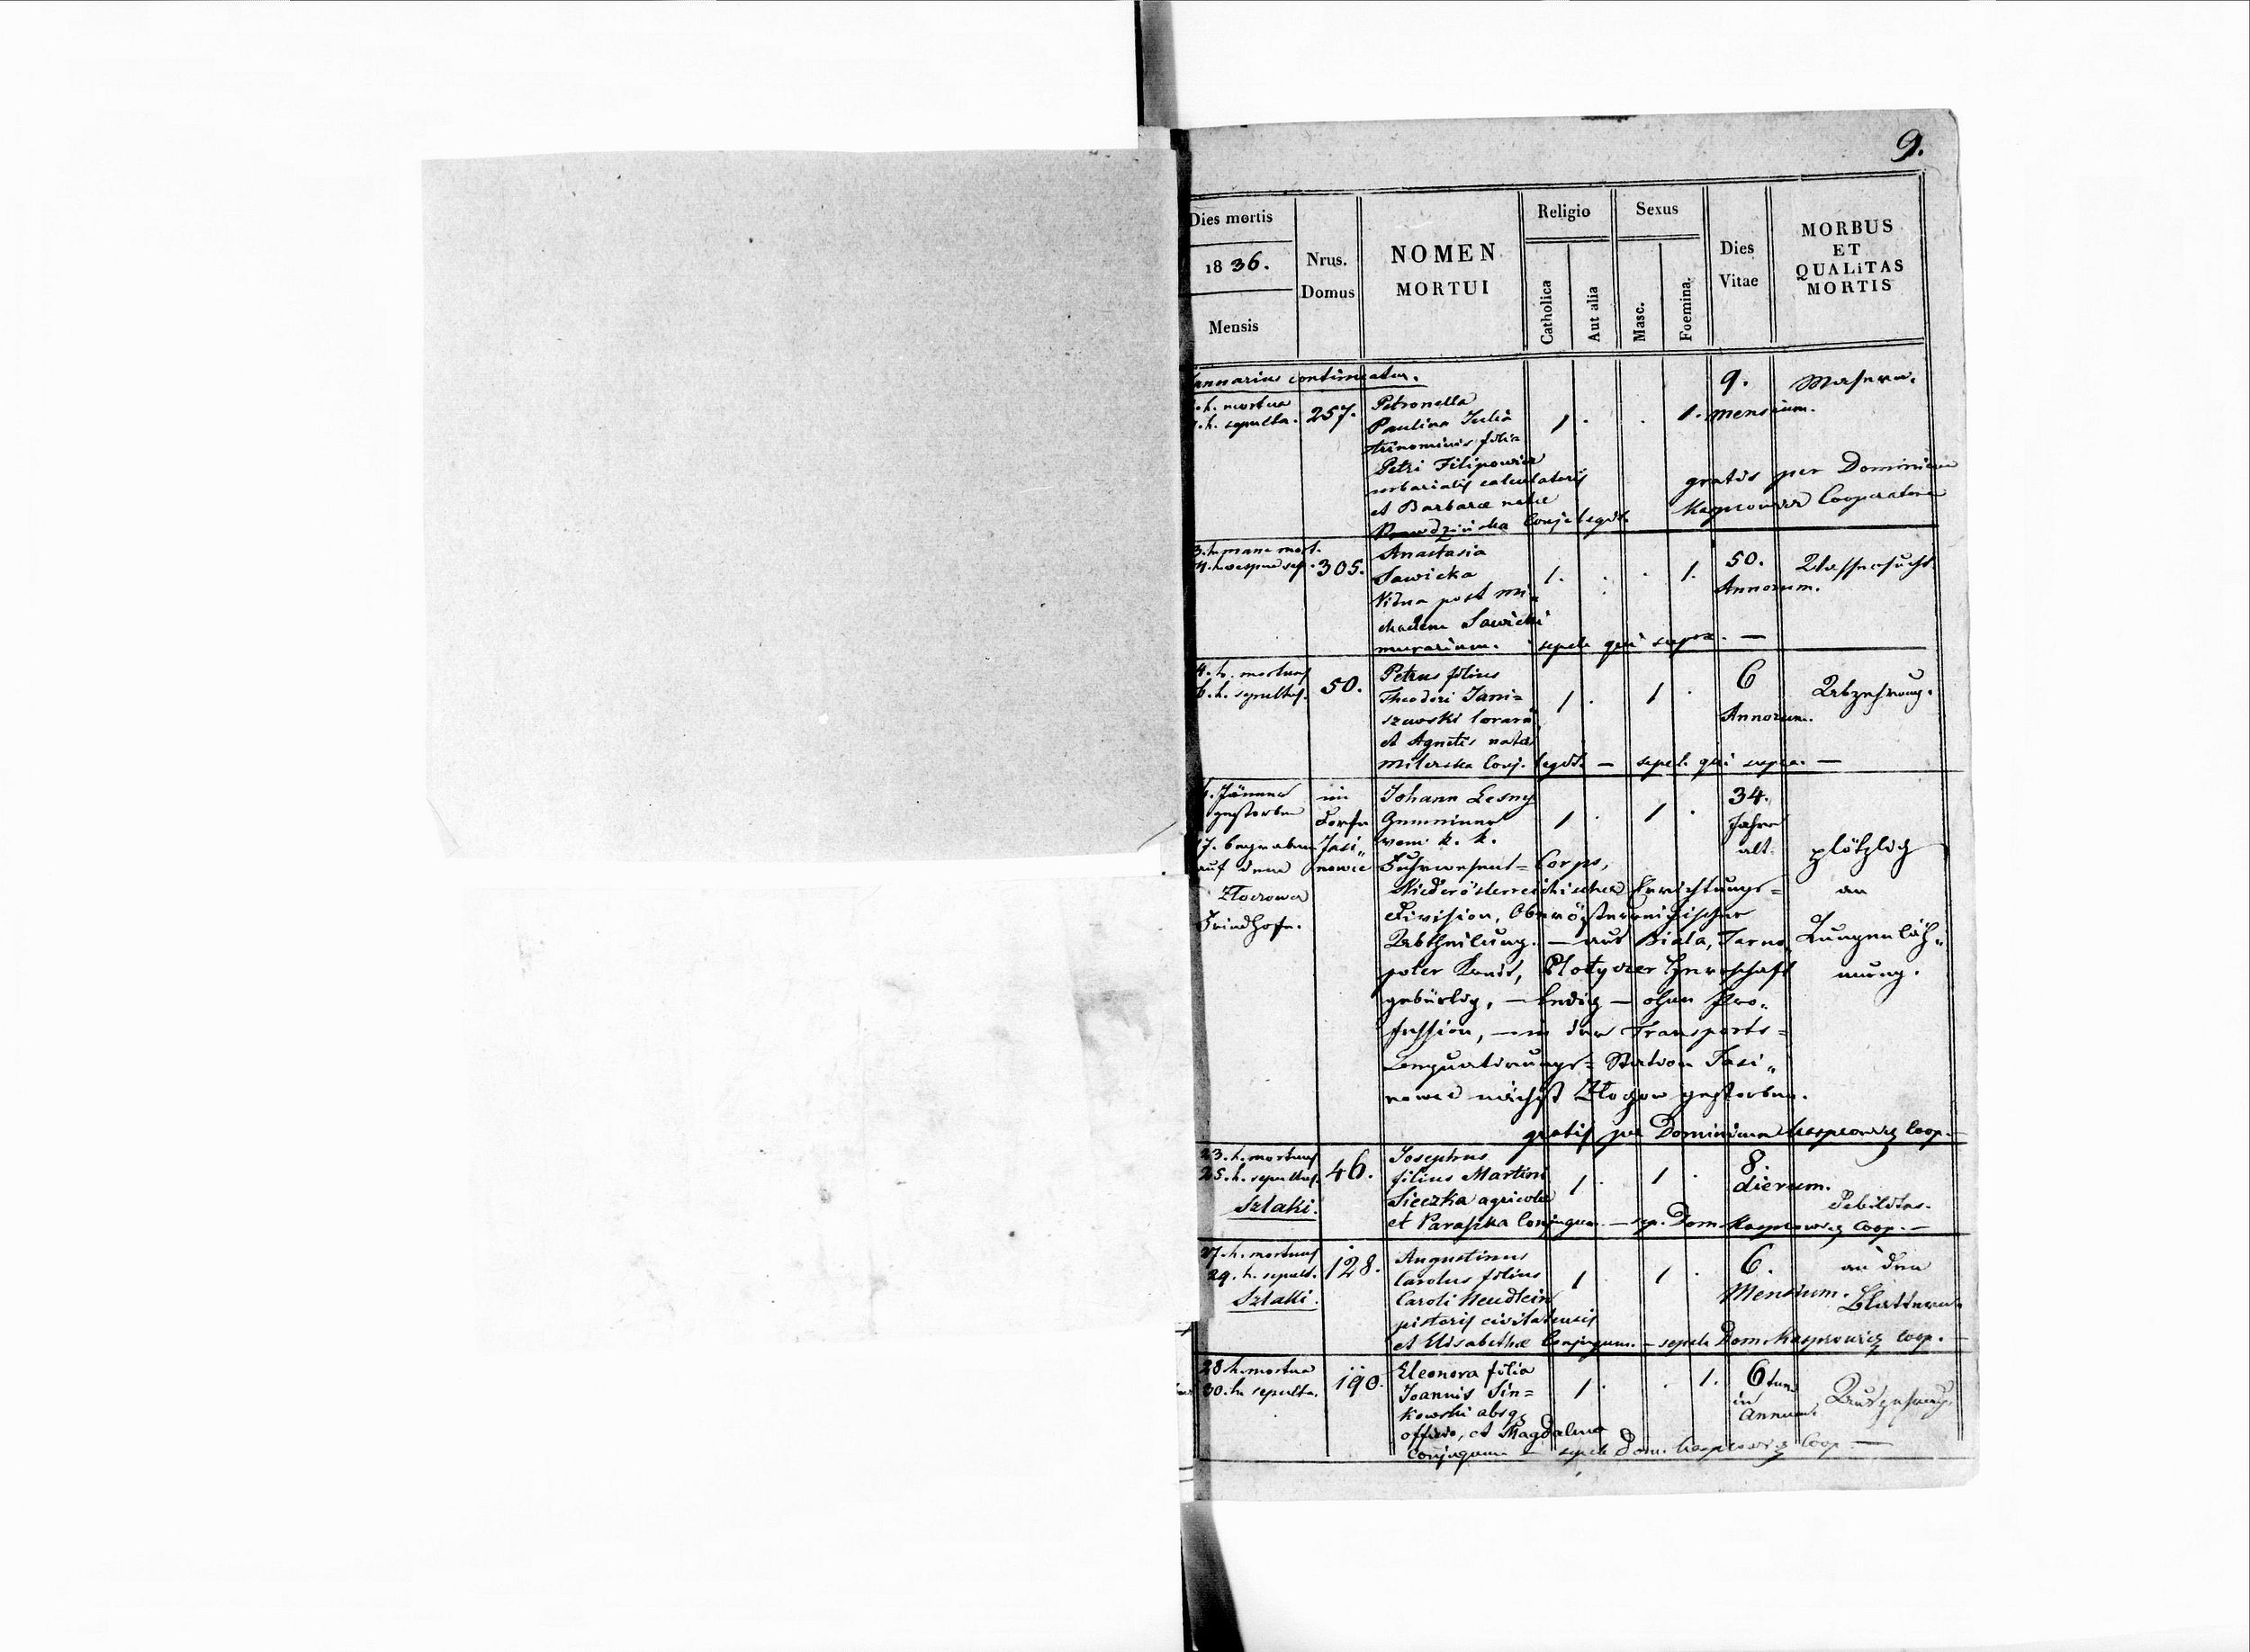 9.
Dies mortis
1836.
Mensis
Nrus. Domus
NOMEN MORTUI
Religio
Catholica
Aut alia
Sexus
Masc.
Foemina.
Dies Vitae
MORBUS ET QUALITAS MORTIS
Januarius continuatur.
h. mortua
h. sepulta.
257.
Petronella
Paulina Julia
trinominis filia
Petri Filipowicz
urbarialis calculatoris
et Barbarae natae
Conj. legit.
1. . . 1.
9.
mensium.
Masern.
gratis per Dominicum
Kasprowicz Cooperatorem
3. h. mane mort.
h. vespere sep.
305.
Anastasia
Sawicka
Vidua post Mi=
chaelem Sawicki
murarium.
1. . . 1.
50.
Annorum.
Wassersucht.
sepel. qui supra. —
4. h. mortuus
6. h. sepultus.
50.
Petrus filius
Theodori Jani=
szewski
et Agnetis natae
Milerska Conj. legit. — sepel. qui supra. —
1 . 1 .
6
Annorum.
Abzehrung.
Jänner
gestorben
17. begraben
auf dem
Złoczower
Friedhofe.
im
Dorfe
Jasi„
nowce
Johann Lesny
Gemeiner
vom k. k.
Fuhrwesens=Corps,
Niederösterreichischer
Division, Oberösterreichischer
Abtheilung. — aus Biała, Tarno„
poler Kreis, Płotyczer Herrschaft
gebürtig, — ledig — ohne Pro„
fession, — in der Transports=
Station Jasi„
nowce nächst Złoczow gestorben.
1 . 1 .
34.
Jahre
alt.
plötzlich
an
Lungenläh„
mung.
gratis per Dominicum Kasprowicz Coop. —
23. h. mortuus
25. h. sepultus.
Szlaki.
46.
Josephus
filius Martini
Sieczka agricolae
et Paraszka Conjugum. — sep. Dom. Kasprowicz Coop. —
1 . 1 .
8.
dierum.
Debilitas.
27. h. mortuus
29. h. sepult.
Szlaki.
128.
Augustinus
Carolus filius
Caroli Neudlein
pistoris civitatensis
et Elisabethae Conjugum. — sepel. Dom. Kasprowicz Coop. —
1 . 1 .
6.
Mensium.
an den
Blattern.
28 h. mortua
30. h. sepulta.
190.
Eleonora filia
Joannis Sin=
kowski absq
officio, et Magdalena
Conjugum — sepel. Dom. Kasprowicz Coop. —
1 . . 1.
6tum
in
Annum.